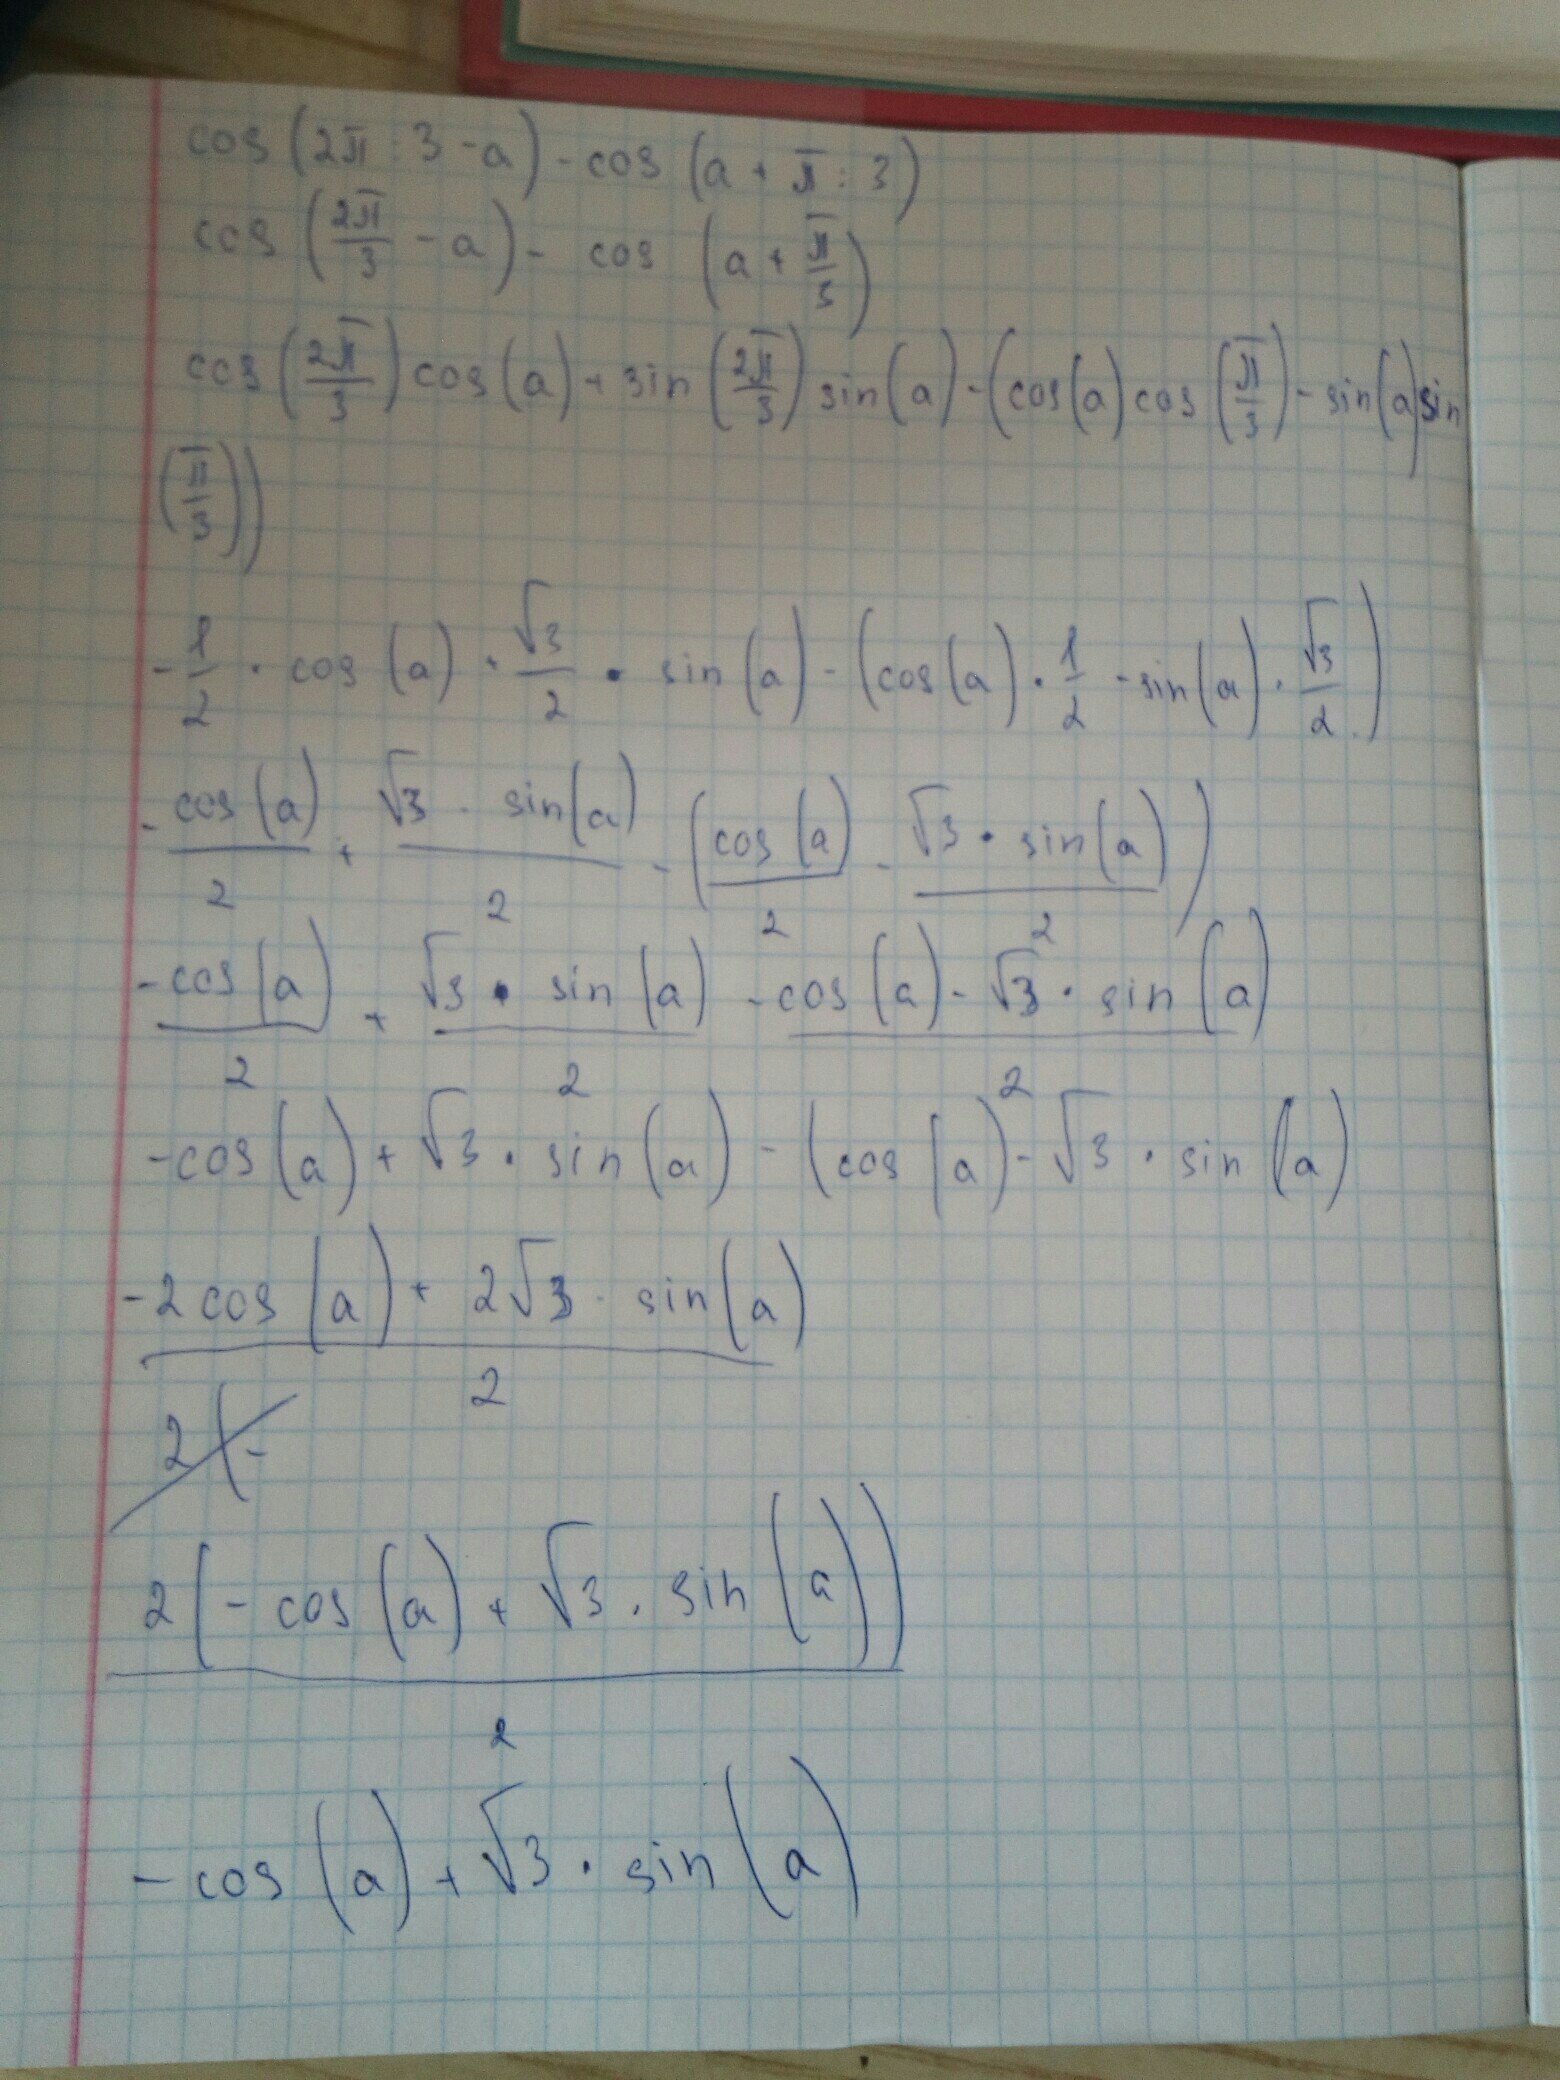 cos (2π : 3 - a) - cos (a + π : 3)
cos (2π/3 - a) - cos (a + π/3)
cos (2π/3) cos (a) + sin (2π/3) sin (a) - (cos (a) cos (π/3) - sin (a) sin
(π/3))
- 1/2 · cos (a) + √3/2 · sin (a) - (cos (a) · 1/2 - sin (a) · √3/2)
- cos (a)/2 + √3 · sin (a)/2 - (cos (a)/2 - √3 · sin (a)/2)
- cos (a)/2 + √3 · sin (a)/2 - cos (a) - √3 · sin (a)/2
- cos (a) + √3 · sin (a) - (cos (a) - √3 · sin (a)
- 2 cos (a) + 2√3 · sin (a)/2
2 (-
2 (- cos (a) + √3 · sin (a))/2
- cos (a) + √3 · sin (a)